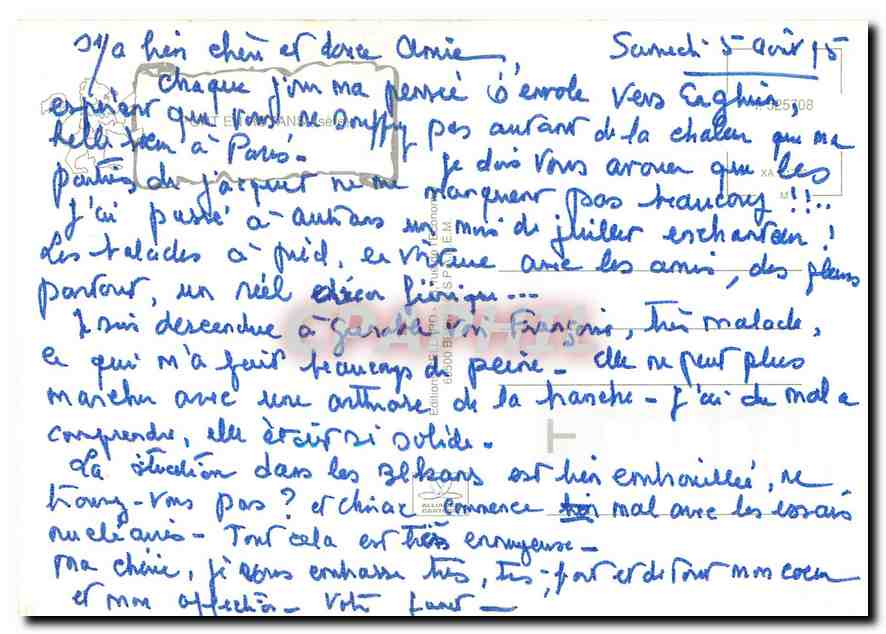 Ma bien chère et douce Amie, Samedi 5 août 95
Chaque jour ma pensée s'envole vers Enghien,
espérant que vous ne souffrez pas autant de la chaleur que ma
belle sœur à Paris. Je dois vous avouer que les
parties de jacquet ne me manquent pas beaucoup !!..
J'ai passé à Autrans un mois de juillet enchanteur !
Les balades à pied, en voiture avec les amis, des fleurs
partout, un réel décor féérique...
Je suis descendue à voir Françoise, très malade,
ce qui m'a fait beaucoup de peine. Elle ne peut plus
marcher avec une arthrose de la hanche - J'ai du mal à
comprendre, elle était si solide.
La situation dans les Balkans est bien embrouillée, ne
trouvez-vous pas ? et Chirac commence mal avec les essais
nucléaires - Tout cela est très ennuyeuse -
Ma chérie, je vous embrasse très, très fort et de tout mon coeur
et mon affection - Votre
CPAPHIL